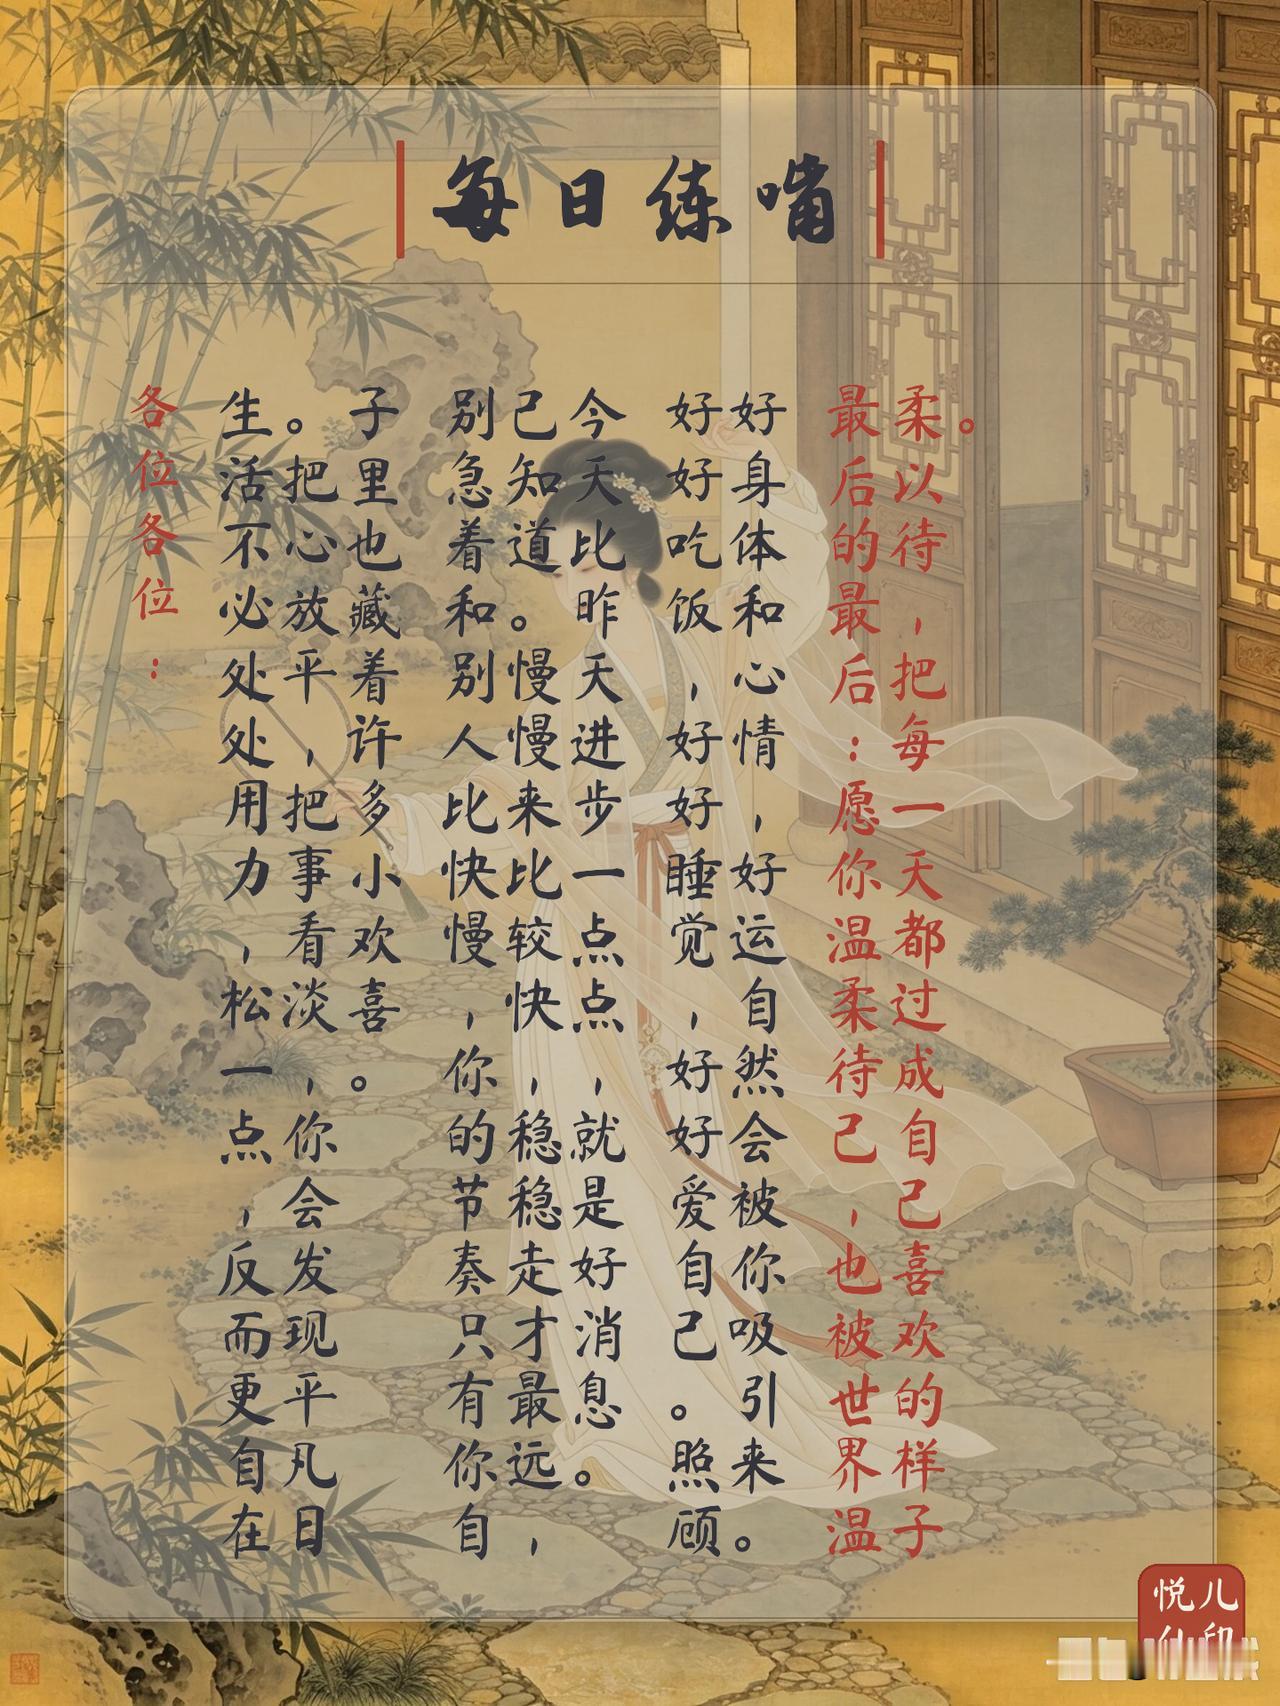 每日练嘴
各位各位：
生活不必处处用力，松一点，反而更自在
。把心放平，把事看淡，你会发现平凡日
子里也藏着许多小欢喜。
别急着和别人比快慢，你的节奏只有你自
己知道。慢慢来比较快，稳稳走才最远，
今天比昨天进步一点点，就是好消息。
好好吃饭，好好睡觉，好好爱自己。照顾
好身体和心情，好运自然会被你吸引来。
最后的最后：愿你温柔待己，也被世界温
柔以待，把每一天都过成自己喜欢的样子
。
悦儿